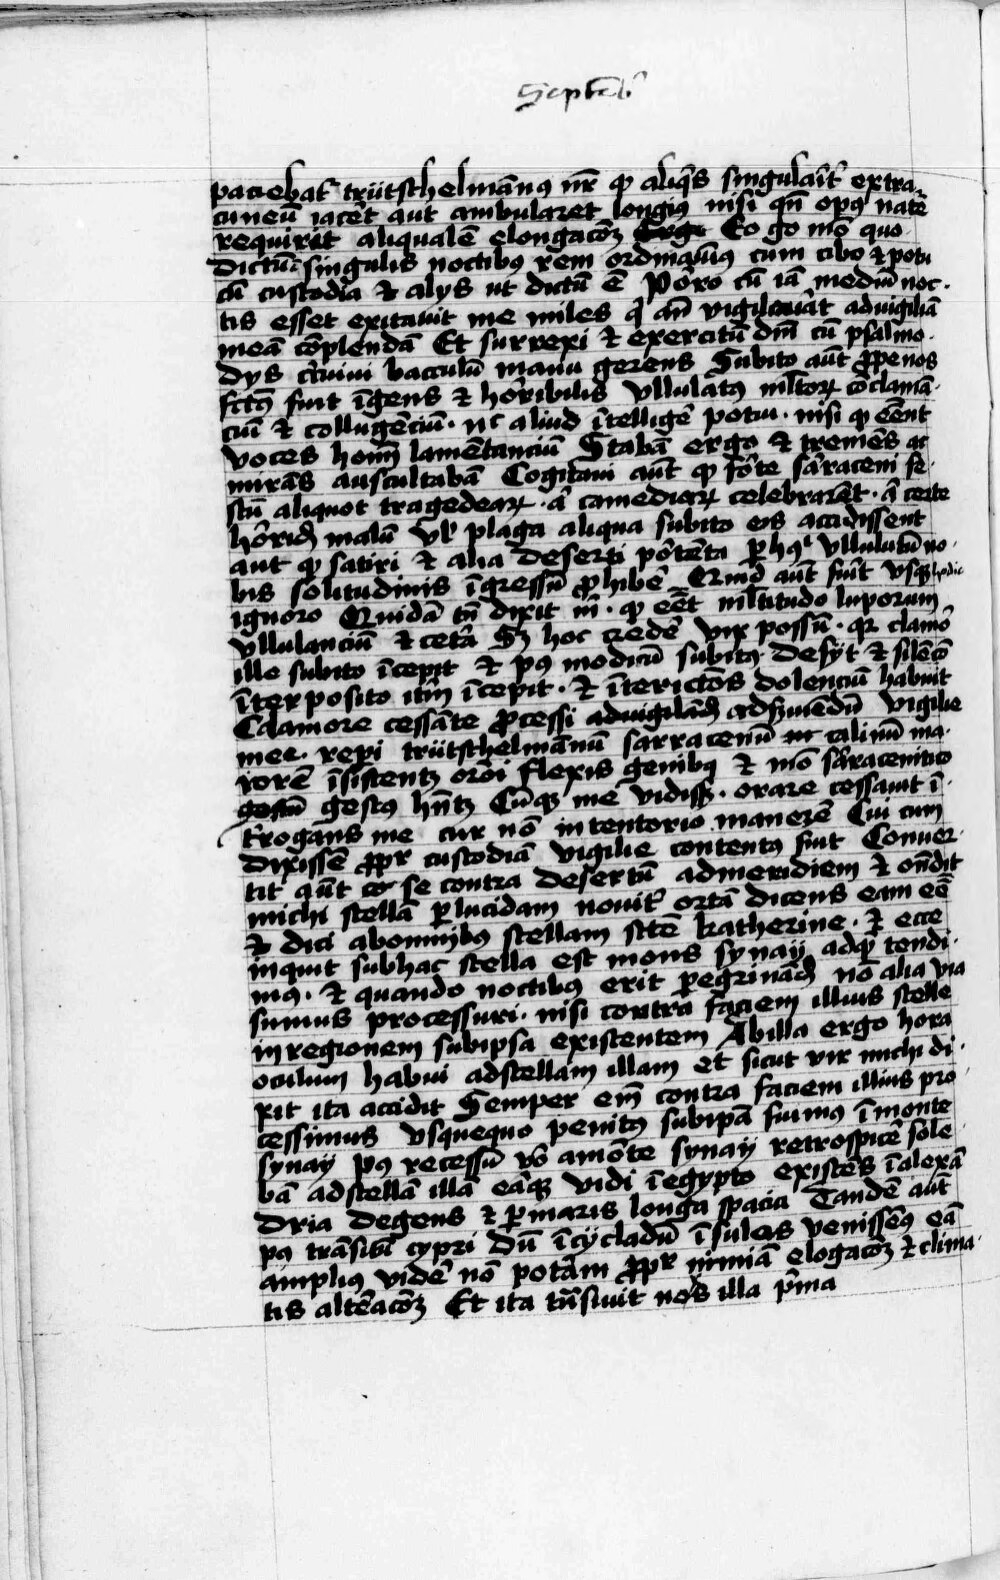 Septēb'
paciebat' trütschelmānus nr̄ qp aliq̄s singulait' extra
cuneū iacēt aut ambularet longius nisi qn̄ opus natē
requirit aliqualē elongacōꝫ Ergo Eo go mō quo
dictū singulis noctibus rem ordinauimus cum cibo et potu
cū custodia et alijs ut dictū ē Porro cū iā mediū noc-
tis esset exitauit me miles q' añ vigilauāt ad uigiliā
meā cōplendā Et surrexi et exercitū dn̄i cū psalmo-
dys circuiui bacculū manu gerens Subito aūt ꝓpe nos
fctus fuit īgens et horribilis vllulatus mltoꝝ cōclamā-
ciū et collugēciū · nc aliud ītelligē potui · nisi qp eēnt
voces hoīm lamētanciū Stabā ergo et tremēs ac
mirās auscultabā Cogitaui aūt qp forte saraceni fe-
stū aliquot tragedeaꝝ · aut camediaꝝ celebrarēt · aut certe
horridū malū vel plaga aliqua subito eis accidissent
aut qp satiri et alia deserti portēta per hūc vllulatū no-
bis solitudinis īgressū ꝓhibē Quid aūt fuīt vsqꝫ hodie
ignoro Quidā tn̄ dixit m̄ · qp eēt mltitudo luporum
vllulanciū et cetā Sꝫ hoc credē vix possū · qꝛ clamor
ille subito īcepit et pus modicū subitus desyt et silēcō
īterposito itm̄ īcepit · et īterictōēs dolenciū habuit
Clamore cessāte ꝓcessi ad uigilādū ad finiēdū vigilie
mee · repi trütschelmānū sarracenū nr̄ calinū ma-
iorē īsistentꝫ orōi flexis genibus et mō saracenico
gestū gestus hn̄tꝫ Cūqꝫ me vidissꝫ · orare cessauit ī-
terrogans me cur nō in tentorio manerē Cui cum
dixissē ꝓpr custodiā vigilie contentus fuit Conuer-
tit aūt se contra desertū ad meridiem et ondit
michi stellā perlucidam nouit' ortā dicens eam eē
et dici ab omnibus stellam stē katherine · et ecce
inquit sub hac stella est mons synay ad quē tendi-
mus · et quando noctibus erit peregrinādū nō alia via
sumus processuri · nisi contra faciem illius stelle
in regionem sub ipsa existentem Ab illa ergo hora
oculum habui ad stellam illam et sicut vir michi di-
xit ita accidit Semper em̄ contra faciem illius pro-
cessimus vsquequo penitus sub ipā fuimus ī monte
synay pus recessū vō a mōte synay retrospicē sole-
bā ad stellā illā eāqꝫ vidi ī egypto existēs ī alexā-
dria degens et per maris longa spacia Tandē aūt
pus trāsitū cypri dū ī cycladū īsulas venissēus eā
amplius vidē nō poterām ꝓpr nimiā elogacōꝫ et clima-
tis altēacōꝫ Et ita tn̄siuit nos illa prima